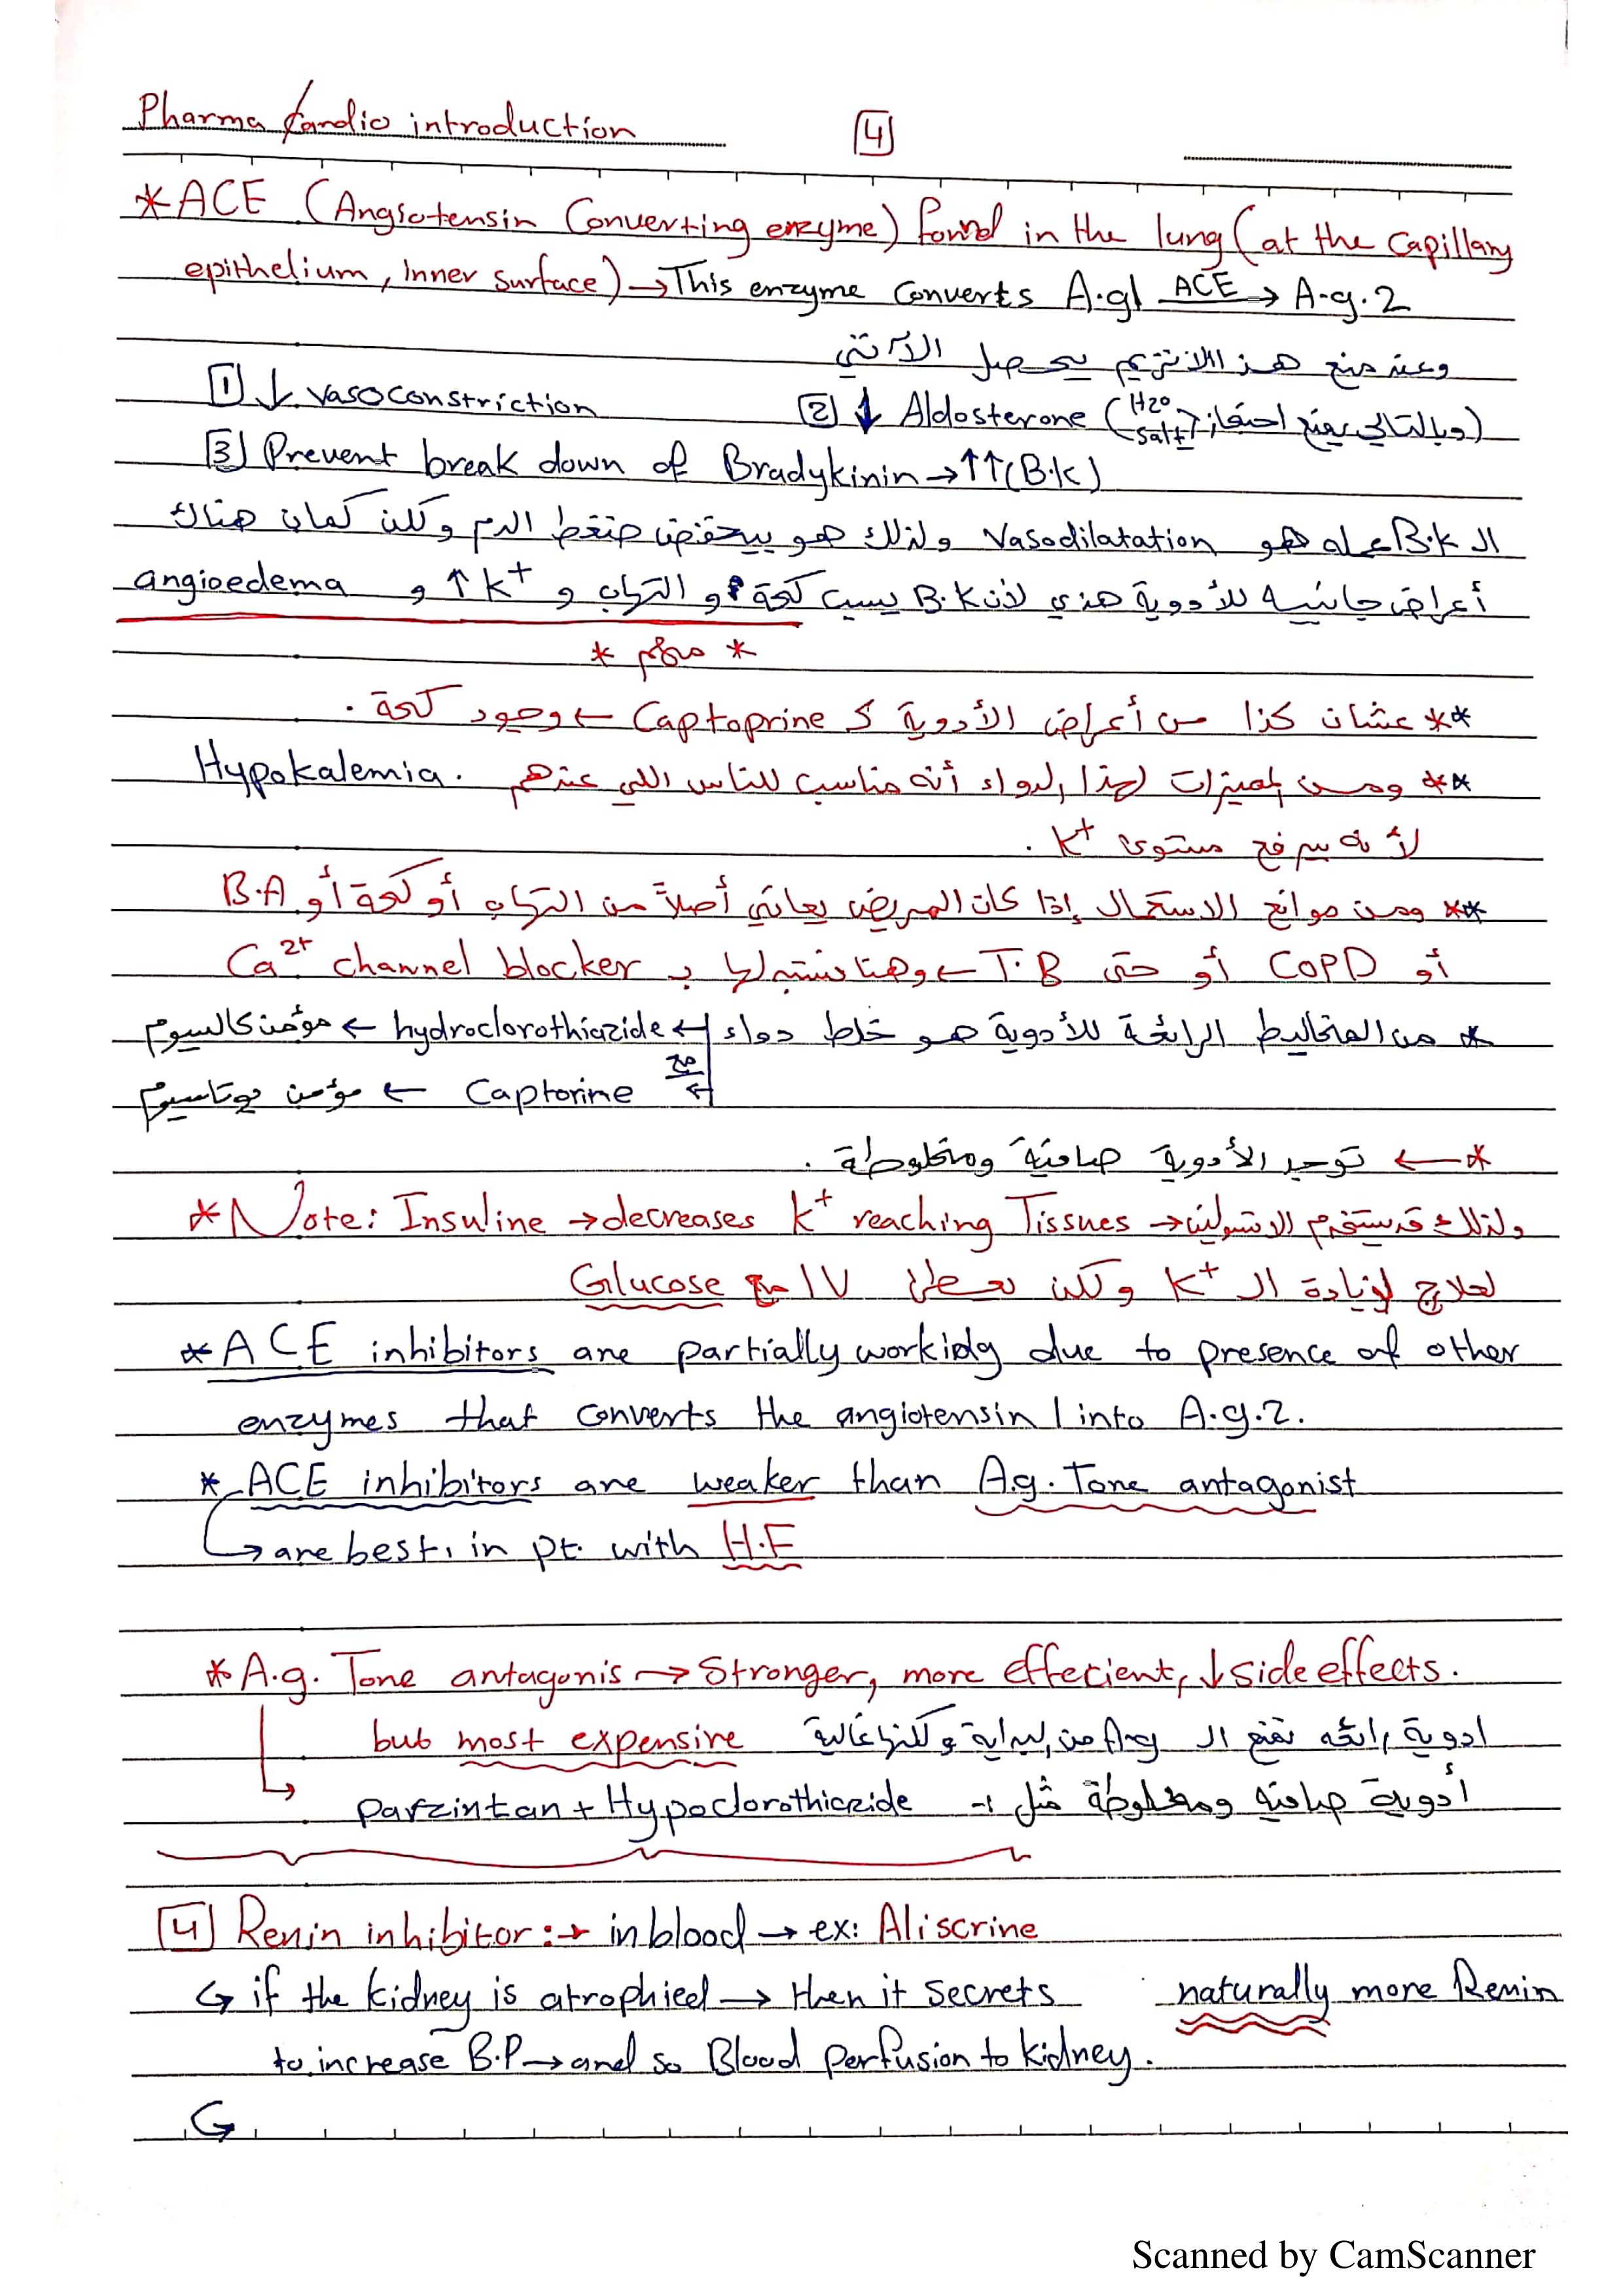 Pharma Cardio introduction
4
*ACE (Angiotensin Converting enzyme) found in the lung (at the Capillary
epithelium, inner surface) → This enzyme converts A.g1 ACE → A.g.2
وعند منع هذا الانزيم يحصل الآتي
1 ↓ vasoconstriction 2 ↓ Aldosterone (وبالتالي يمنع احتفاظ H2O salt)
3 Prevent break down of Bradykinin → ↑↑ (B.K)
الـ B.K عمله هو Vasodilatation ولذلك هو بيخفض ضغط الدم ولكن كمان هناك
أعراض جانبيه للأدوية هذي لأن B.K يسبب كحة و التهاب و ↑ K+ و angioedema
* مهم *
** عشان كذا من أعراض الأدوية كـ Captoprine ← وجود كحة .
** ومن مميزات هذا الدواء أنه مناسب للناس اللي عندهم Hypokalemia.
لأنه يرفع مستوى K+ .
** ومن موانع الاستعمال إذا كان المريض يعاني أصلاً من التهاب أو كحة أو B.A
أو COPD أو حتى T.B ← وهنا نستبدلها بـ Ca2+ channel blocker
* من المخاليط الرائجة للأدوية هو خلط دواء ← hydroclorothiazide ← مؤمن كالسيوم
مع ← Captorine ← مؤمن بوتاسيوم
* ← توجد الأدوية صافية ومخلوطة .
*Note: Insuline → decreases K+ reaching Tissues → ولذلك قد يستخدم الانسولين
لعلاج زيادة الـ K+ ولكن نعطى IV مع Glucose
*ACE inhibitors are partially working due to presence of other
enzymes that converts the angiotensin 1 into A.g.2.
* ACE inhibitors are weaker than A.g. Tone antagonist
↳ are best, in pt. with H.F
*A.g. Tone antagonis → Stronger, more effecient, ↓ side effects.
but most expensive ادوية رائعه تمنع الـ A.g من البداية ولكنها غالية
↳ أدوية صافيه ومخلوطة مثل :- Parzintan + Hypoclorothiazide
4 Renin inhibitor :→ in blood → ex: Aliscrine
↳ if the kidney is atrophied → then it secrets naturally more Renin
to increase B.P → and so Blood perfusion to kidney.
↳
Scanned by CamScanner